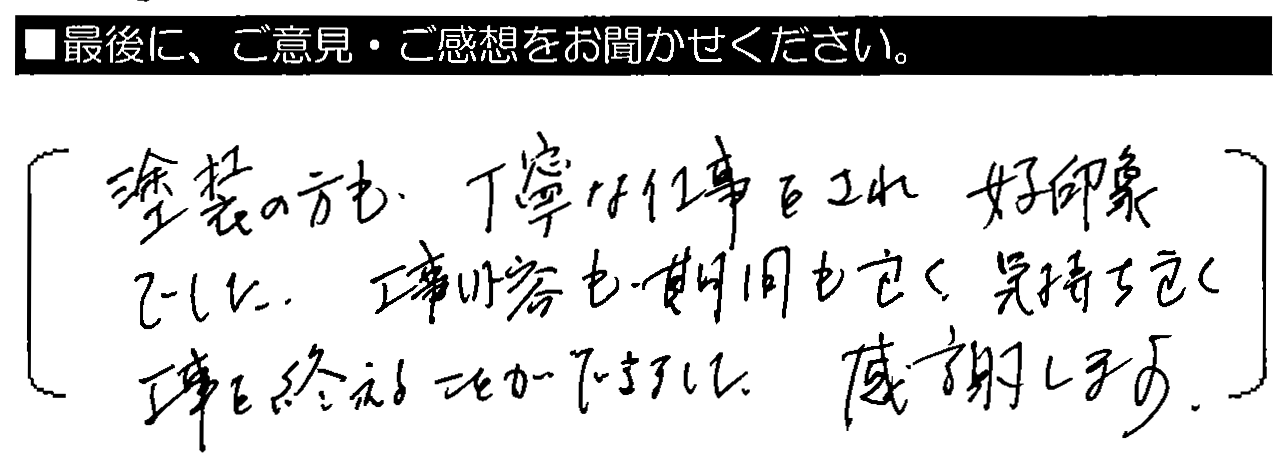 ■最後に、ご意見・ご感想をお聞かせください。
塗装の方も、丁寧な仕事をされ 好印象
でした。工事内容も、期間も良く、気持ち良く
工事を終えることができました。感謝します。